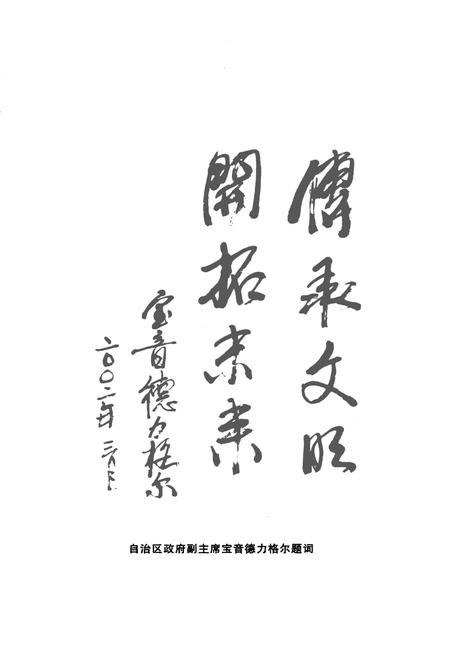 傳承文明
開拓未来
宝音德力格尔
二〇〇二年三月
自治区政府副主席宝音德力格尔题词